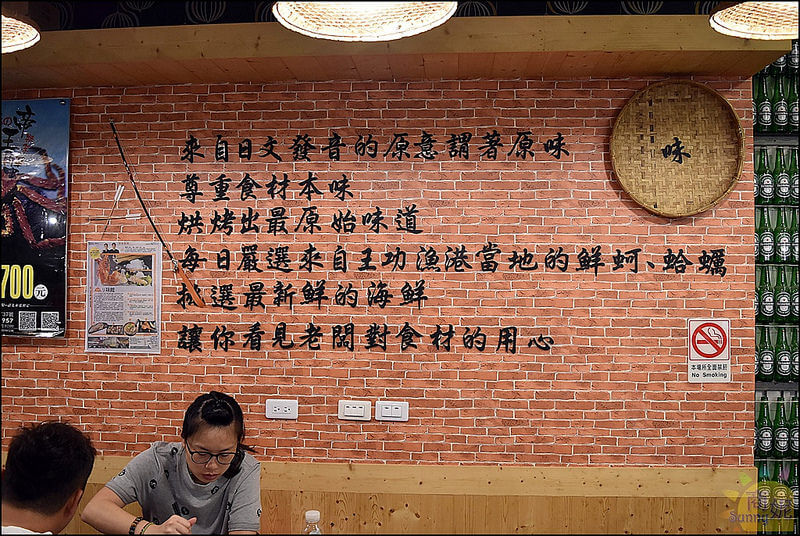 來自日文發音的原意謂著原味
尊重食材本味
烘烤出最原始味道
每日嚴選來自王功漁港當地的鮮蚵、蛤蠣
挑選最新鮮的海鮮
讓你看見老闆對食材的用心
味
700元
957
本場所全面禁菸
No Smoking
Sunny